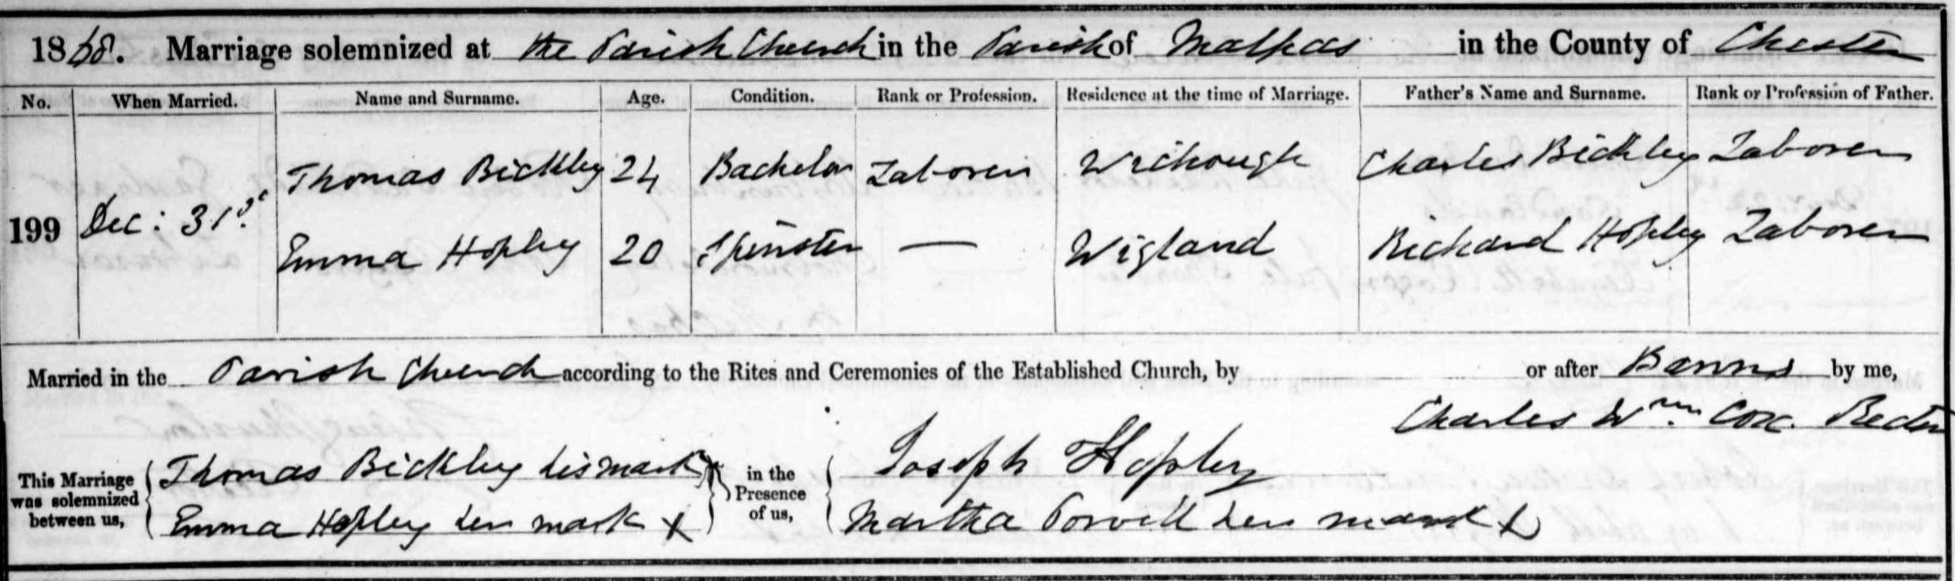 1868. Marriage solemnized at the Parish Church in the Parish of Malpas in the County of Chester
No. When Married. Name and Surname. Age. Condition. Rank or Profession. Residence at the time of Marriage. Father's Name and Surname. Rank or Profession of Father.
Thomas Bickley 24 Bachelor Laborer Wichough Charles Bickley Laborer
199 Dec: 31st.
Emma Hopley 20 Spinster — Wigland Richard Hopley Laborer
Married in the Parish Church according to the Rites and Ceremonies of the Established Church, by or after Banns by me,
Charles Wm. Cox. Rector
This Marriage was solemnized between us, Thomas Bickley his mark X in the Presence of us, Joseph Hopley
Emma Hopley her mark X Martha Powell her mark X